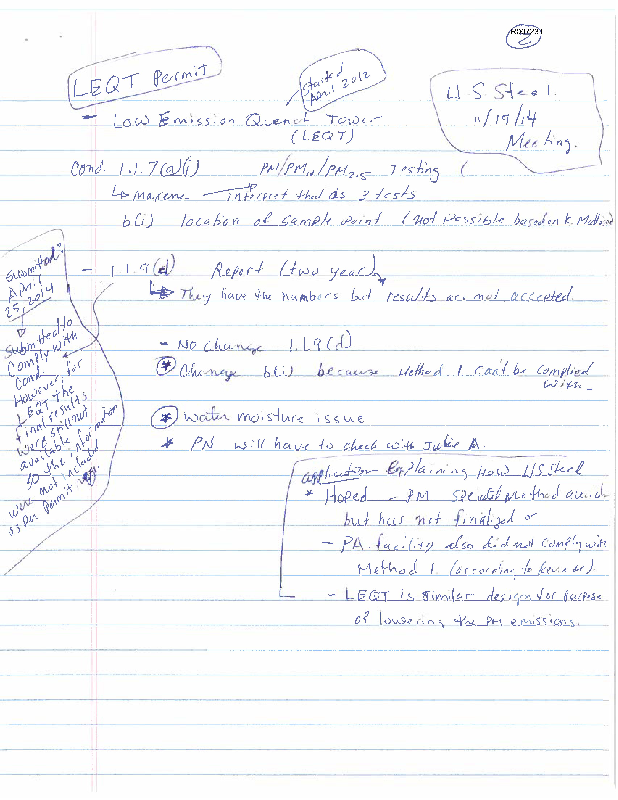 2
LEQT Permit
Started
April 2012
US Steel
11/19/14
Meeting.
- Low Emission Quench Tower
(LEQT)
Cond. 1.1.7(a)(i) PM/PM10/PM2.5 Testing (
interpret that as 3 tests
b(i) location of sample point (not possible based on Method
- 1.1.9(d) Report (two years)
* They have the numbers but results are not accepted.
- No Change 1.1.9(d)
* Change b(i) because Method 1 can't be complied
with -
* Water moisture issue
* PN will have to check with Julie A.
application Explaining How US Steel
* Hoped - PM Method
but has not finalized or
- PA facility also did not comply with
Method 1. (according to
- LEQT is similar design for purpose
of lowering the PM emissions.
Submitted:
April
25, 2014
Submitted to
Comply with
Cond.
However, for
LEQT the
final results
were still not
available
so the information
were not included
as per permit